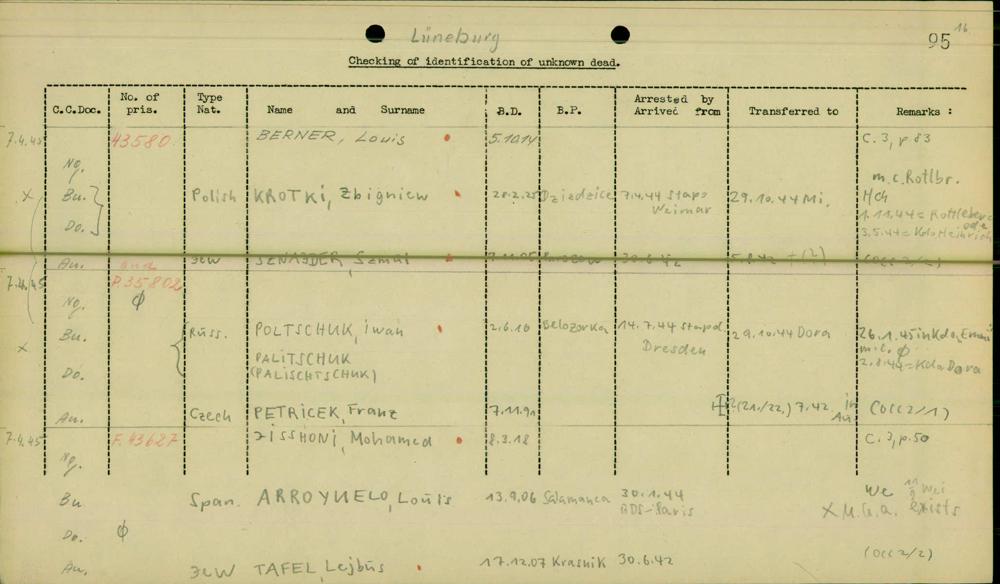 Lüneburg
95 16
Checking of identification of unknown dead.
C.C.Doc. No. of pris. Type Nat. Name and Surname B.D. B.P. Arrested by Arrived from Transferred to Remarks :
7.4.45 43580 BERNER, Louis 5.10.14 C. 3, p 83
Ng.
m.c. Rottlbr.
x Bu. Polish KROTKi, Zbigniew Dziedzice 7.4.44 Stapo Weimar 29.10.44 Mi. Hch
1.11.44 = Rottleber
Do. 3.5.44 = Kdo Heinrich
Au. Jew SZNAJDER, Szmul 30.6.42 (Occ 2/2)
P.35802
Ng. ϕ
x Bu. Russ. POLTSCHUK, iwan 2.6.16 Belozorka 14.7.44 Stapol Dresden 29.10.44 Dora 26.1.45 in Kdo,
PALITSCHUK m.c. ϕ
Do. (PALISCHTSCHUK) 2.8.44 = Kdo Dora
Au. Czech PETRICEK, Franz 7.11.91 2(21./22.) 7.42 in Au (Occ 2/1)
7.4.45 F. 43627 JiSSHONi, Mohamed 8.3.18 C. 3, p. 50
Ng.
Bu Span. ARROYUELO, Louis 13.9.06 Salamanca 30.1.44 BDS-Paris We
x M.G.A. exists
Do. ϕ
Au. Jew TAFEL, Lejbus 17.12.07 Krasnik 30.6.42 (Occ 2/2)